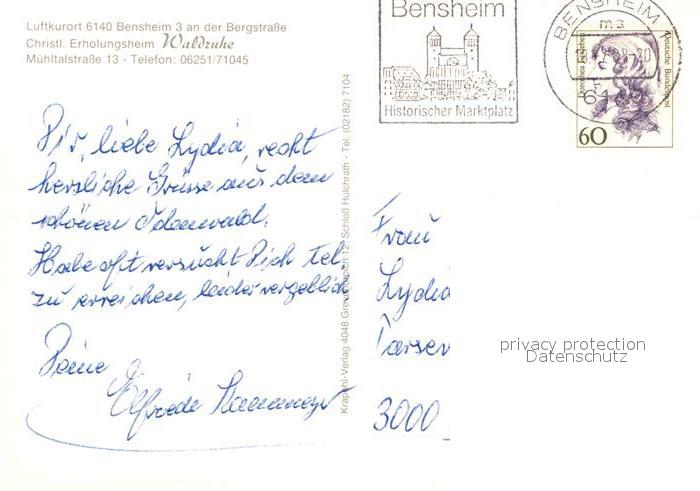 Luftkurort 6140 Bensheim 3 an der Bergstraße
Christl. Erholungsheim Waldruhe
Mühltalstraße 13 - Telefon: 06251/71045
Bensheim
Historischer Marktplatz
BENSHEIM
ma
Dorothea Erxleben
Deutsche Bundespost
60
Dir, liebe Lydia, recht
herzliche Grüsse aus dem
schönen Odenwald.
Habe oft versucht Dich tel.
zu erreichen, leider vergeblich
Deine
Elfriede
Krapohl-Verlag 4048 Grevenbroich 12, Schloß Hülchrath - Tel. (02182) 7104
Frau
Lydia
3000
privacy protection
Datenschutz